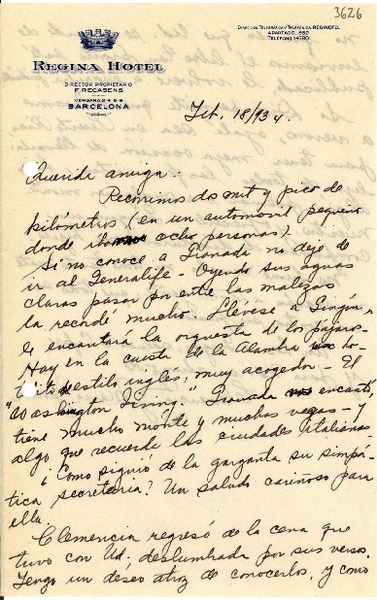 3626
REGINA HOTEL
DIRECTOR PROPIETARIO
F. RECASENS
VERGARA 2-4-6-8
BARCELONA
DIRECCIÓN TELEGRÁFICA Y TELEFÓNICA: REGINOTEL
APARTADO, 662
TELÉFONO 14790
Feb. 18/934.
Querida amiga:
Recorrimos dos mil y pico de
kilómetros (en un automóvil pequeño
donde íbamos ocho personas).
Si no conoce a Granada no deje de
ir al Generalife - Oyendo sus aguas
claras pasar por entre las malezas
la recordé mucho. Llévese a
le encantará la orquesta de los pájaros.
Hay en la cuesta de la Alambra un ho-
estilo inglés, muy acogedor - El
"Washington Irving." Granada encanta,
tiene mucho monte y muchas vegas - y
algo que recuerda las ciudades italianas
¿Como siguió de la garganta su simpá-
tica secretaria? Un saludo cariñoso para
ella
Clemencia regresó de la cena que
tuvo con Ud; deslumbrada por sus versos.
Tengo un deseo atroz de conocerlos, y como